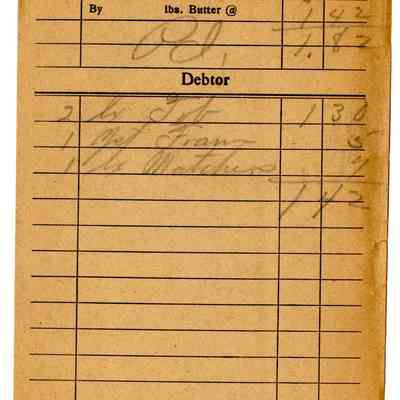 By lbs. Butter @ 1 42
Pd. 1.87
Debtor
2 lb Tob 1 30
1 5
1 bx Matches 7
1 42